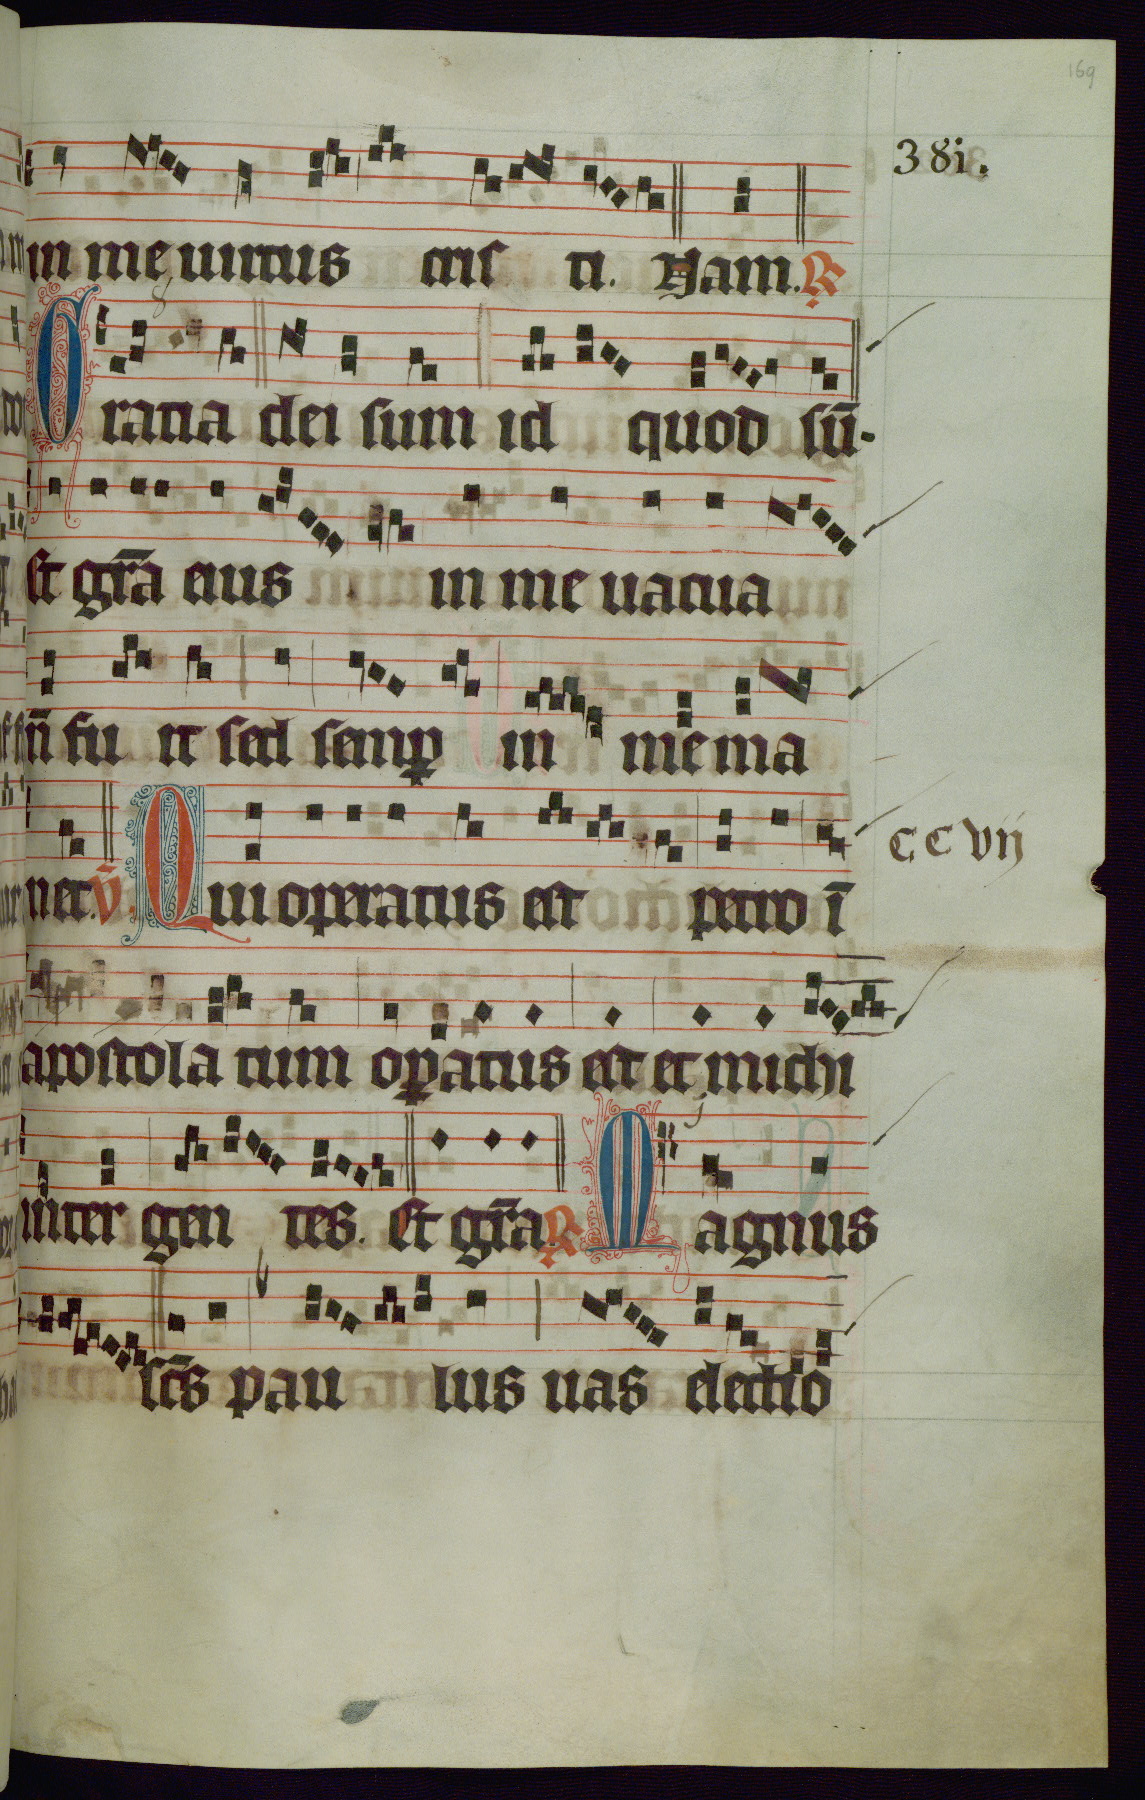 169
38i.
in me uirtus cris ti. Nam. R
Gratia dei sum id quod sū
Et gr̄a eius in me uacua
n̄ fu it sed semp̱ in me ma
net. V̄. Qui operatus est petro ī
CCVij
apostola tum op̱atus est et michi
inter gen tes. Et gr̄a R Magnus
sc̄s pau lus uas electio